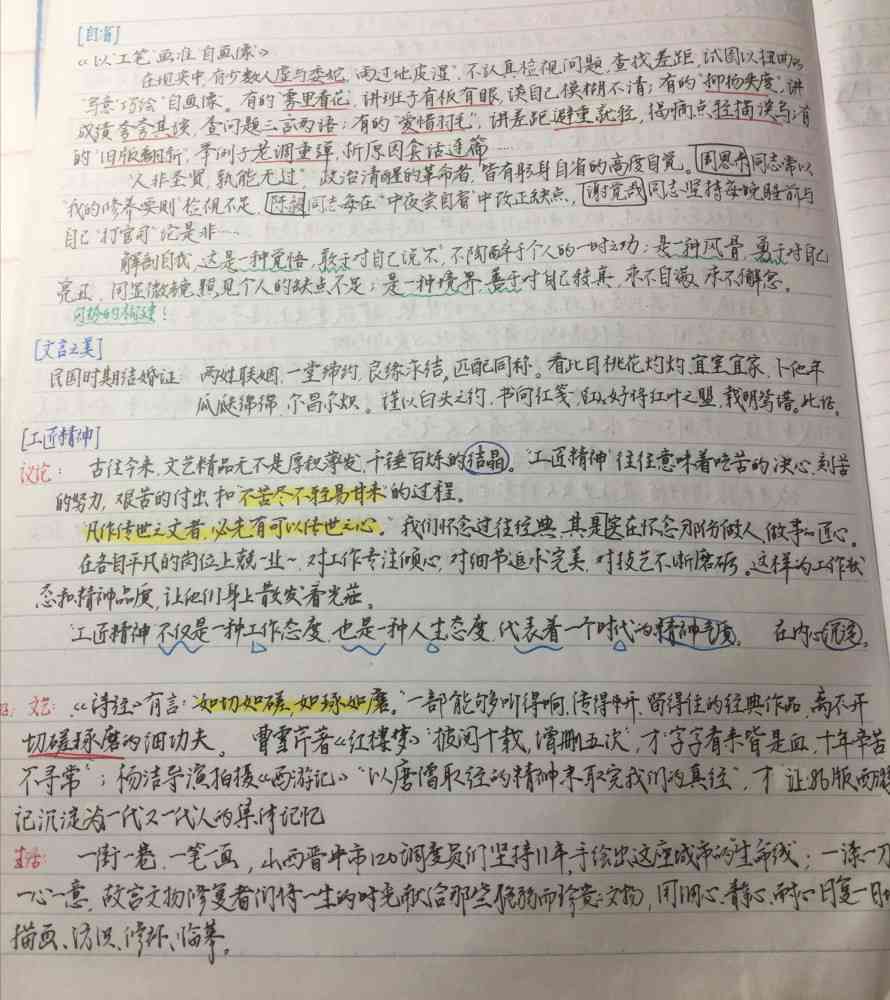 [自省]
《以"工笔"画准"自画像"》
在现实中,有少数人虚与委蛇,"雨过地皮湿",不认真检视问题,查找差距,试图以扭曲的
"写意巧绘"自画像。有的"雾里看花",讲班子有板有眼,谈自己模糊不清;有的"抑扬失度",讲
成绩夸夸其谈,查问题三言两语;有的"爱惜羽毛",讲差距避重就轻,揭痛点轻描淡写;有
的"旧版翻新",举例子老调重弹,析原因套话连篇……
"人非圣贤,孰能无过",政治清醒的革命者,皆有躬身自省的高度自觉。周恩来同志常以
"我的修养要则"检视不足,陈毅同志每在"中夜尝自省"中改正缺点,谢觉哉同志坚持每晚睡前与
自己"打官司"论是非……
解剖自我,这是一种觉悟,敢于对自己说"不",不陶醉于个人的一时之功;是一种风骨,勇于对自己
亮丑,用显微镜照见个人的缺点不足;是一种境界,善于对自己较真,来不自满,永不懈怠。
[文言之美]
民国时期结婚证 两姓联姻,一堂缔约,良缘永结,匹配同称。看此日桃花灼灼,宜室宜家,卜他年
瓜瓞绵绵,尔昌尔炽。谨以白头之约,书向红笺,好将红叶之盟,载明鸳谱。此证。
[工匠精神]
议论: 古往今来,文艺精品无不是厚积薄发,千锤百炼的结晶。"工匠精神"往往意味着吃苦的决心,刻苦
的努力,艰苦的付出和"不苦尽不轻易甘来"的过程。
"凡作传世之文者,必先有可以传世之心。"我们怀念过往经典,其实是在怀念那份做人,做事的匠心。
在各自平凡的岗位上兢兢业业,对工作专注倾心,对细节追求完美,对技艺不断磨砺。这样的工作状
态和精神品质,让他们身上散发着光茫。
"工匠精神"不仅是一种工作态度,也是一种人生态度,代表着一个时代的精神气质。 在内心沉淀。
文艺:《诗经》有言:"如切如磋,如琢如磨。"一部能够叫得响,传得开,留得住的经典作品,离不开
切磋琢磨的细功夫。曹雪芹著《红楼梦》"披阅十载,增删五次",才"字字看来皆是血,十年辛苦
不寻常";杨洁导演拍摄《西游记》"以唐僧取经的精神来取完我们的真经",才让86版西游
记沉淀为一代又一代人的集体记忆
生活: 一街一巷,一笔一画,山西晋中市120调度员们坚持11年,手绘出这座城市的生命线;一漆一刀
一心一意,故宫文物修复者们将一生的时光献给那些脆弱而珍贵的文物,用细心,静心,耐心日复一日地
描画、访识、修补、临摹。